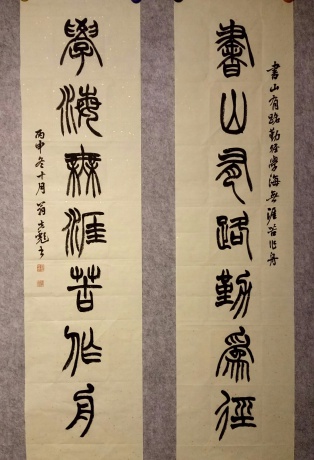 書山有路勤径學海無涯苦作舟
書山有路勤為徑
學海無涯苦作舟
丙申冬十月翁彪書